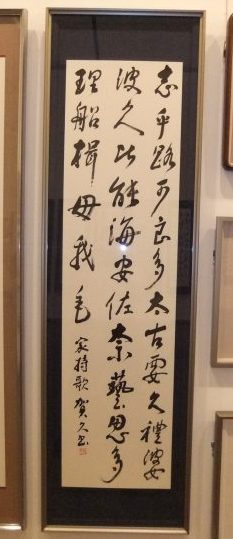 志乎路可良多太古要久禮婆
波久比能海安佐奈藝思多
理船楫母我毛
家持歌